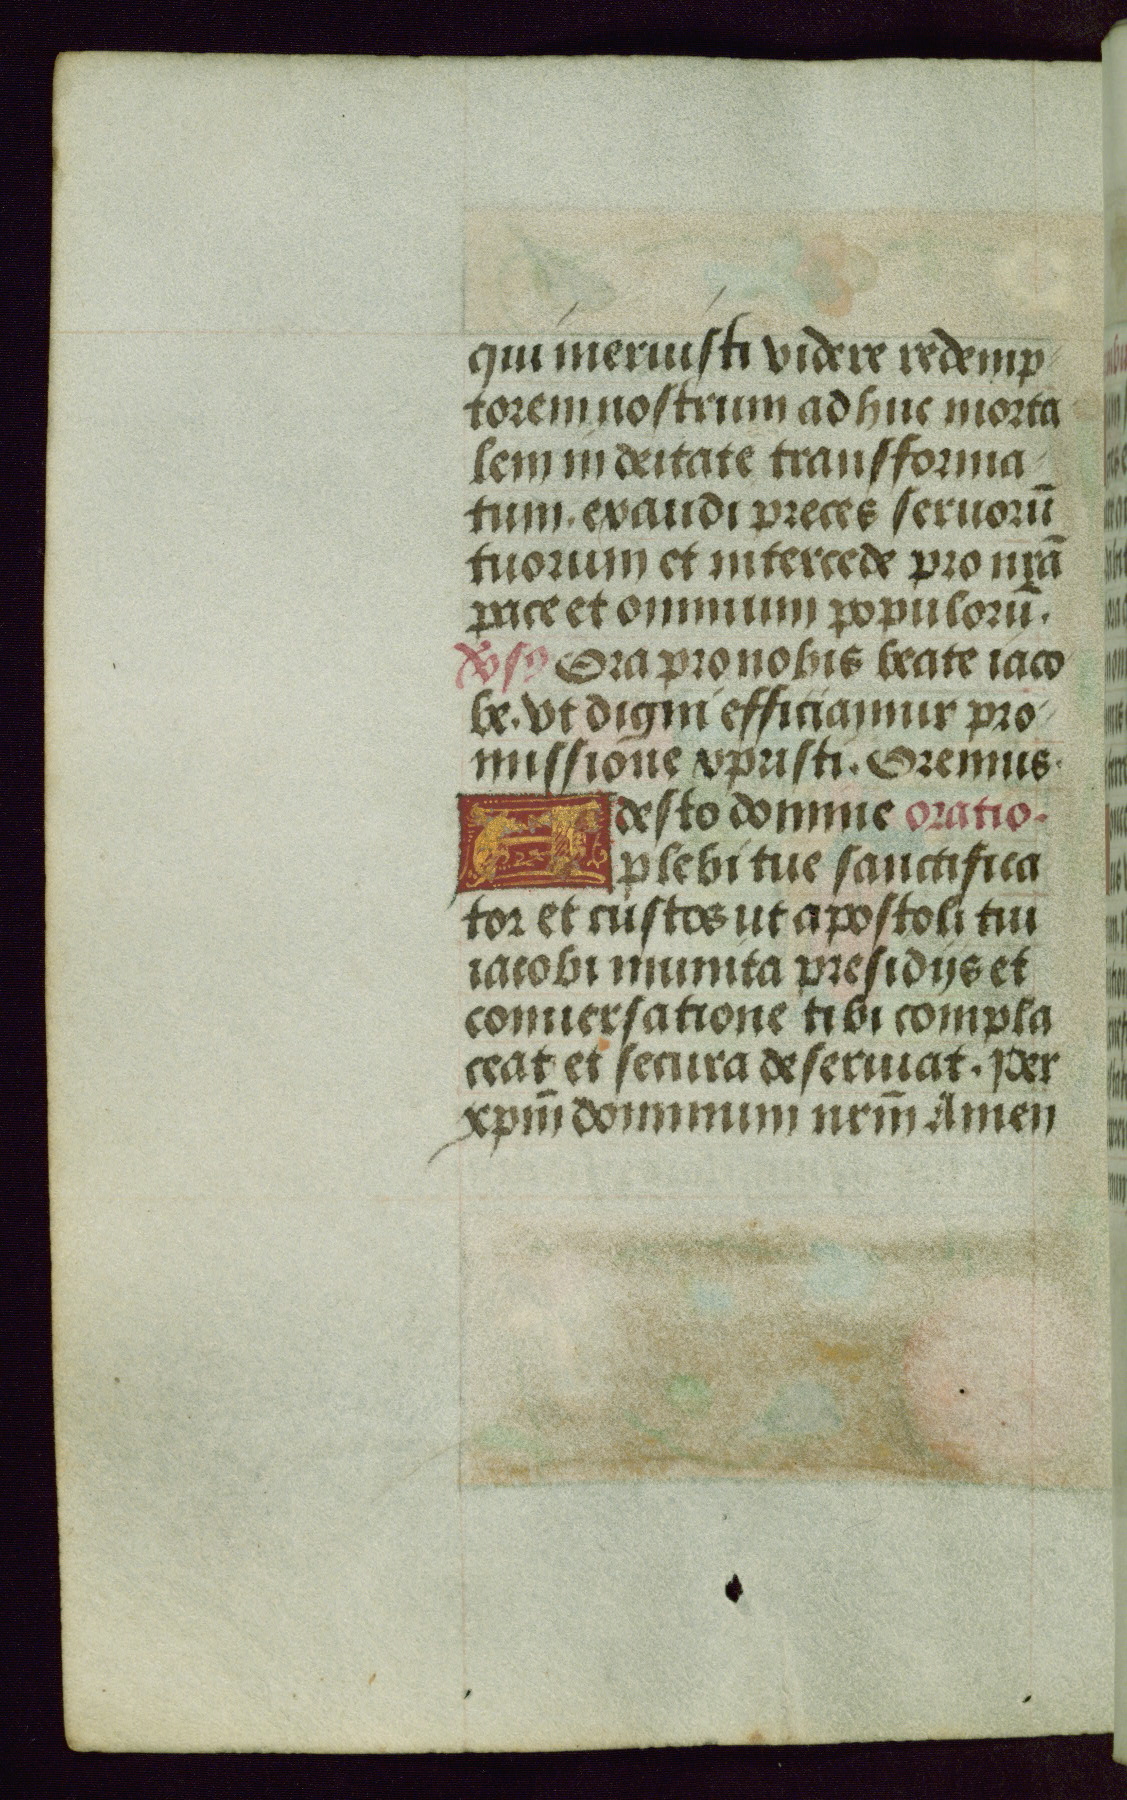 qui meruisti videre redemp
torem nostrum adhuc morta
lem in deitate transforma
tum. exaudi preces seruorū
tuorum et intercede pro nr̄a
pace et omnium populorū.
Ora pro nobis beate iaco
be. vt digni efficiamur pro
missione xpristi. Oremus.
Adesto domine oratio.
plebi tue sanctifica
tor et custos ut apostoli tui
iacobi munita presidijs et
conuersatione tibi compla
ceat et secura deseruiat. Per
xpm̄ dominum nrm̄ Amen